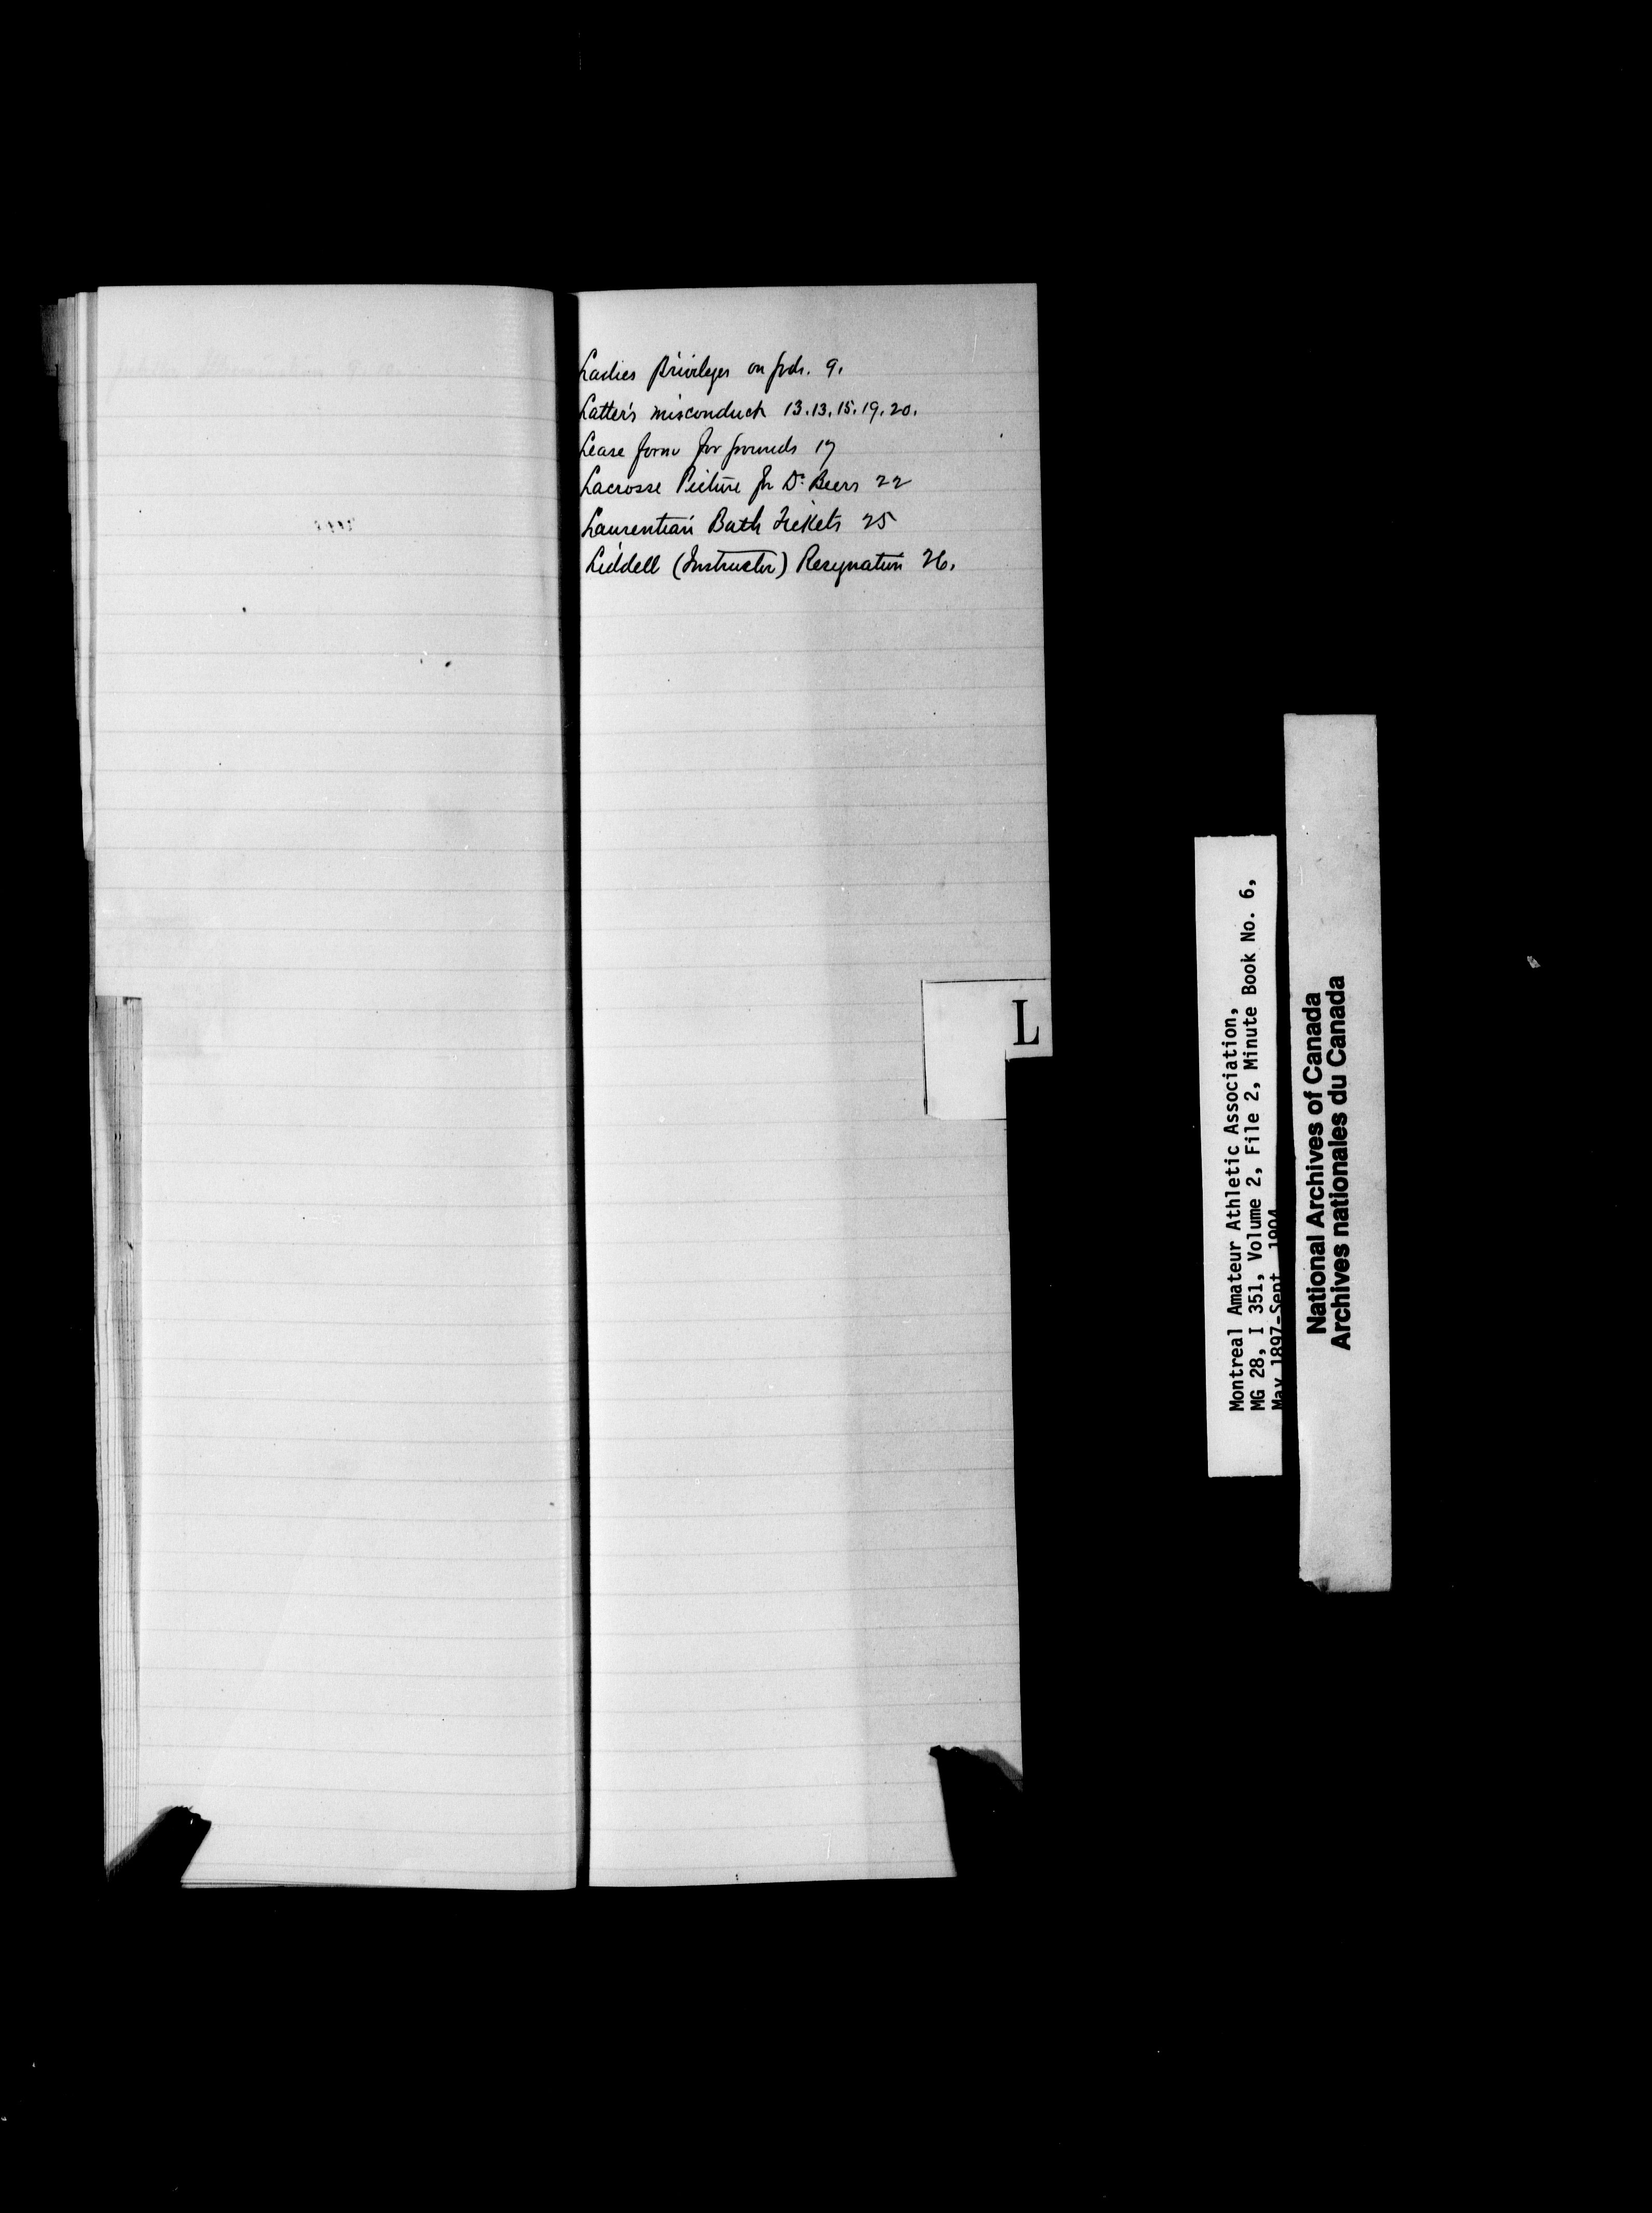 Ladies Privileges on grds. 9.
Latter's misconduct 13.13.15.19.20.
Lease form for grounds 17
Lacrosse Picture fr Dr. Beers 22
Laurentian Bath Tickets 25
Liddell (Instructor) Resignation 26.
L
Montreal Amateur Athletic Association,
MG 28, I 351, Volume 2, File 2, Minute Book No. 6,
May 1897-Sept 1904
National Archives of Canada
Archives nationales du Canada